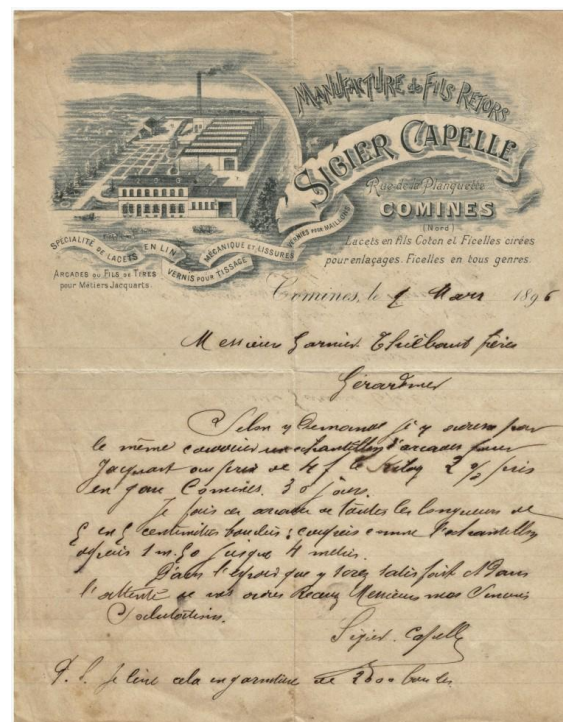 MANUFACTURE de FILS RETORS
SIGIER CAPELLE
Rue de la Planquette
COMINES
(Nord)
Lacets en fils Coton et Ficelles cirées
pour enlaçages. Ficelles en tous genres.
SPÉCIALITÉ DE LACETS EN LIN MÉCANIQUE ET LISSURES VERNIES POUR MAILLONS
VERNIS POUR TISSAGE
ARCADES OU FILS DE TIRES
pour Métiers Jacquarts.
Comines, le Mars 1896
Messieurs Garnier Thiébaut frères
Gérardmer
Selon v demande je v par
le même courrier un échantillon d'arcades pour
Jacquart au prix de 4 f le Kilog 2 % pris
en gare Comines. 30 jours.
Je fais ces arcades de toutes les longueurs de
5 en 5 centimètres bouclés; coupées comme l'échantillon
depuis 1 m. 50 jusque 4 mètres.
Dans l'espoir que v serez satisfait et Dans
l'attente de vos ordres Recevez Messieurs mes Sincères
Salutations.
Sigier-Capelle
P. S. Je livre cela en garniture de 2500 boucles